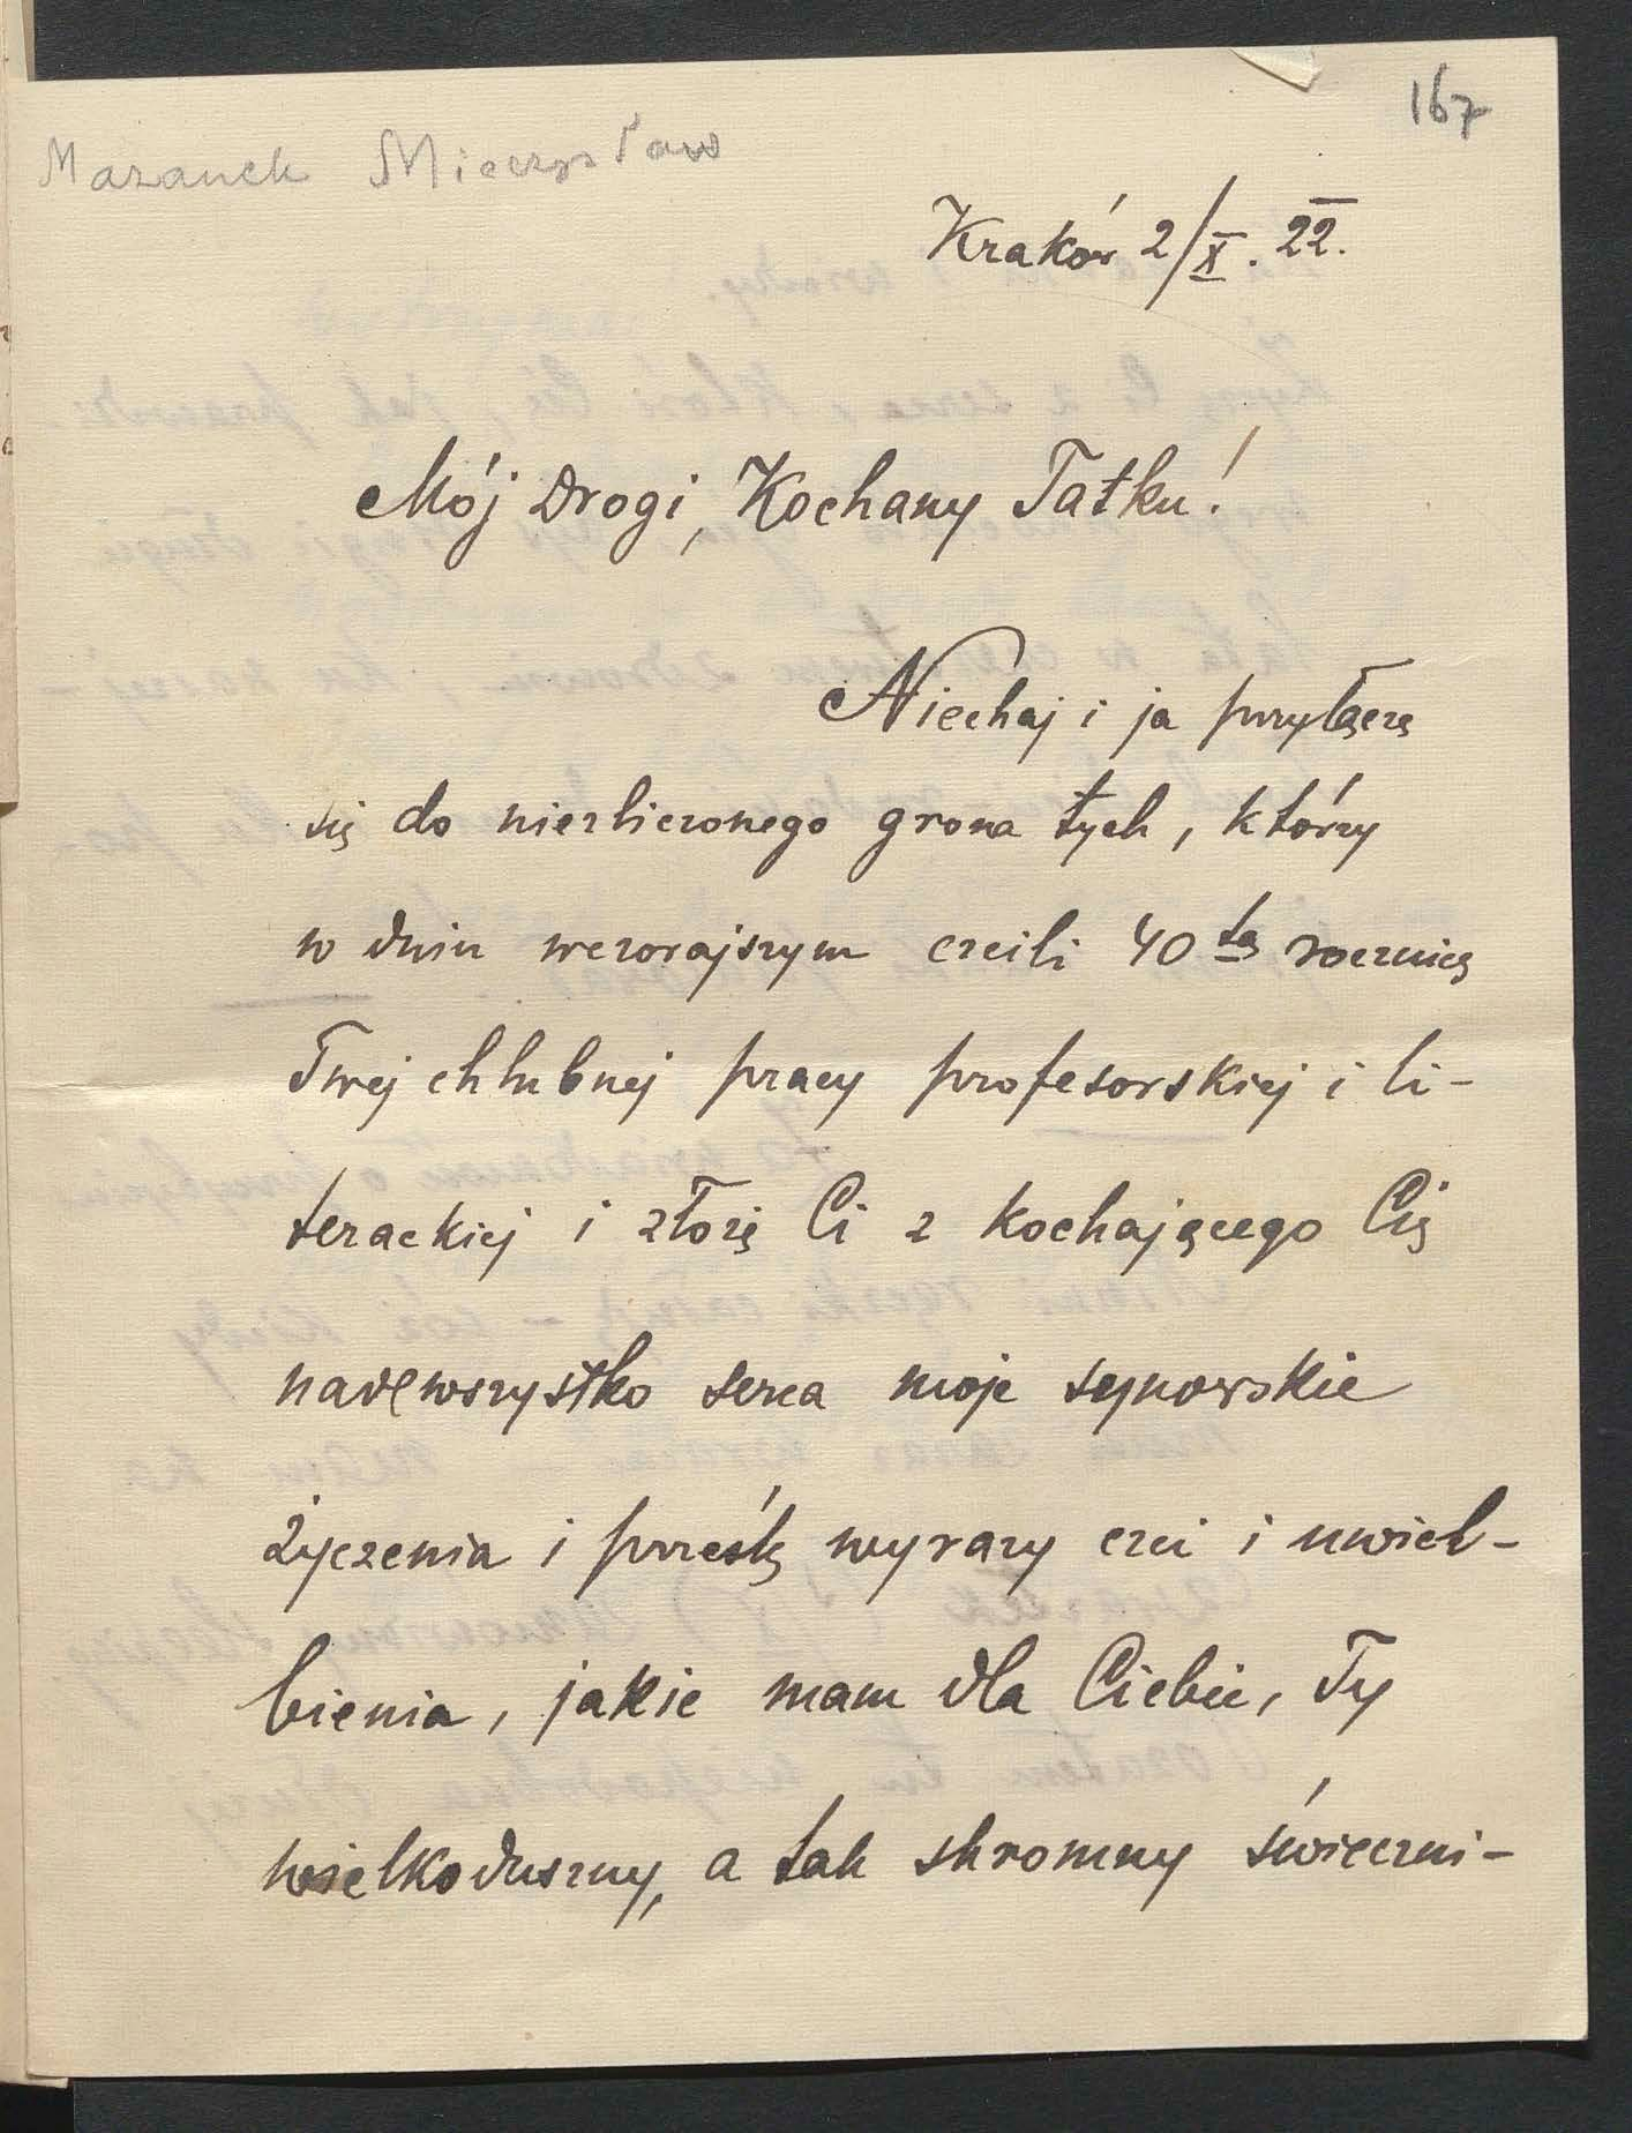 167
Mazanek Mieczysław
Kraków 2/X. 22.
Mój Drogi, Kochany Tatku!
Niechaj i ja przyłączę
się do niezliczonego grona tych, którzy
w dniu wczorajszym czcili 40tą rocznicę
Twej chlubnej pracy profesorskiej i li-
terackiej i złożę Ci z kochającego Cię
nadewszystko serca moje synowskie
życzenia i prześlę wyrazy czci i uwiel-
bienia, jakie mam dla Ciebie, Ty
wielkoduszny, a tak skromny świeczni-